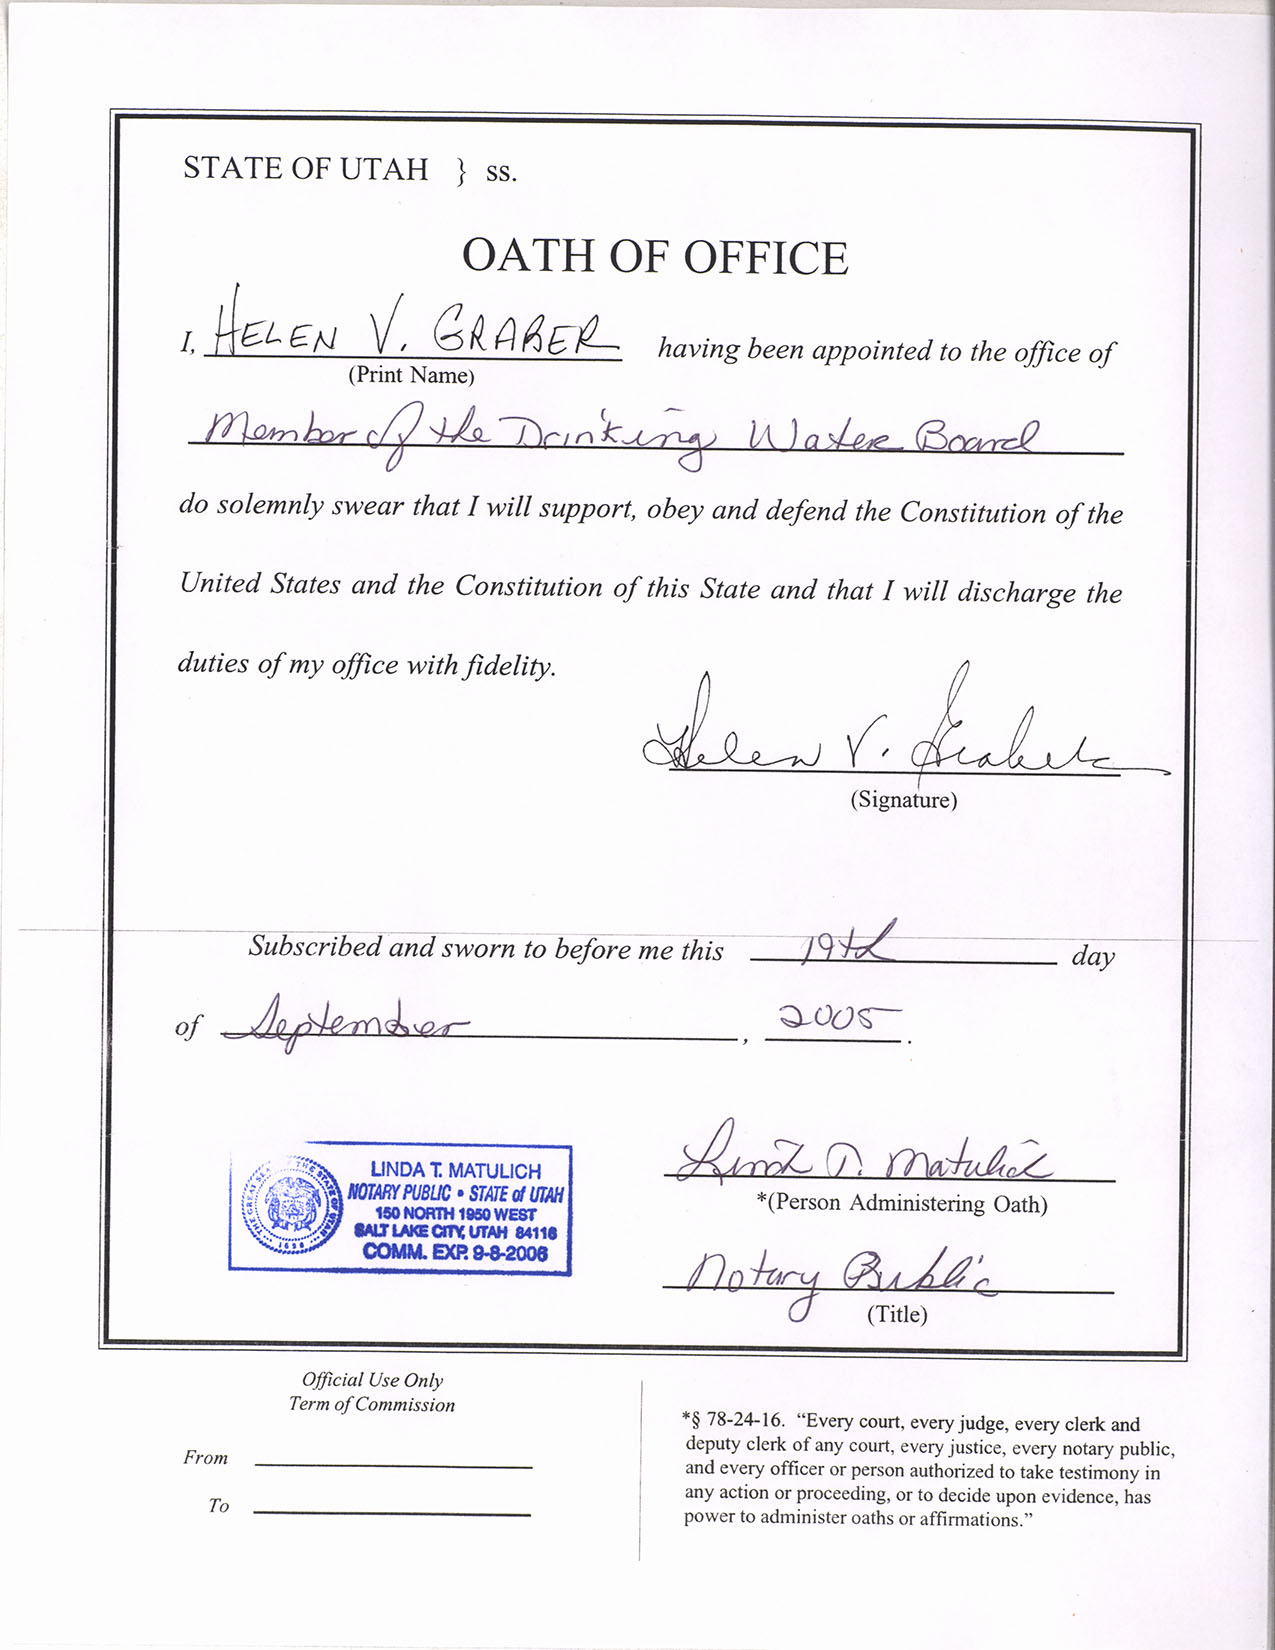 STATE OF UTAH } ss.
OATH OF OFFICE
I, HELEN V. GRABER having been appointed to the office of
(Print Name)
Member of the Drinking Water Board
do solemnly swear that I will support, obey and defend the Constitution of the
United States and the Constitution of this State and that I will discharge the
duties of my office with fidelity.
Helen V. Graber
(Signature)
Subscribed and sworn to before me this 19th day
of September, 2005.
LINDA T. MATULICH
NOTARY PUBLIC • STATE of UTAH
150 NORTH 1950 WEST
SALT LAKE CITY, UTAH 84116
COMM. EXP. 9-8-2006
THE GREAT SEAL OF THE STATE OF UTAH
1896
Linda T. Matulich
*(Person Administering Oath)
Notary Public
(Title)
Official Use Only
Term of Commission
From
To
*§ 78-24-16. “Every court, every judge, every clerk and
deputy clerk of any court, every justice, every notary public,
and every officer or person authorized to take testimony in
any action or proceeding, or to decide upon evidence, has
power to administer oaths or affirmations.”